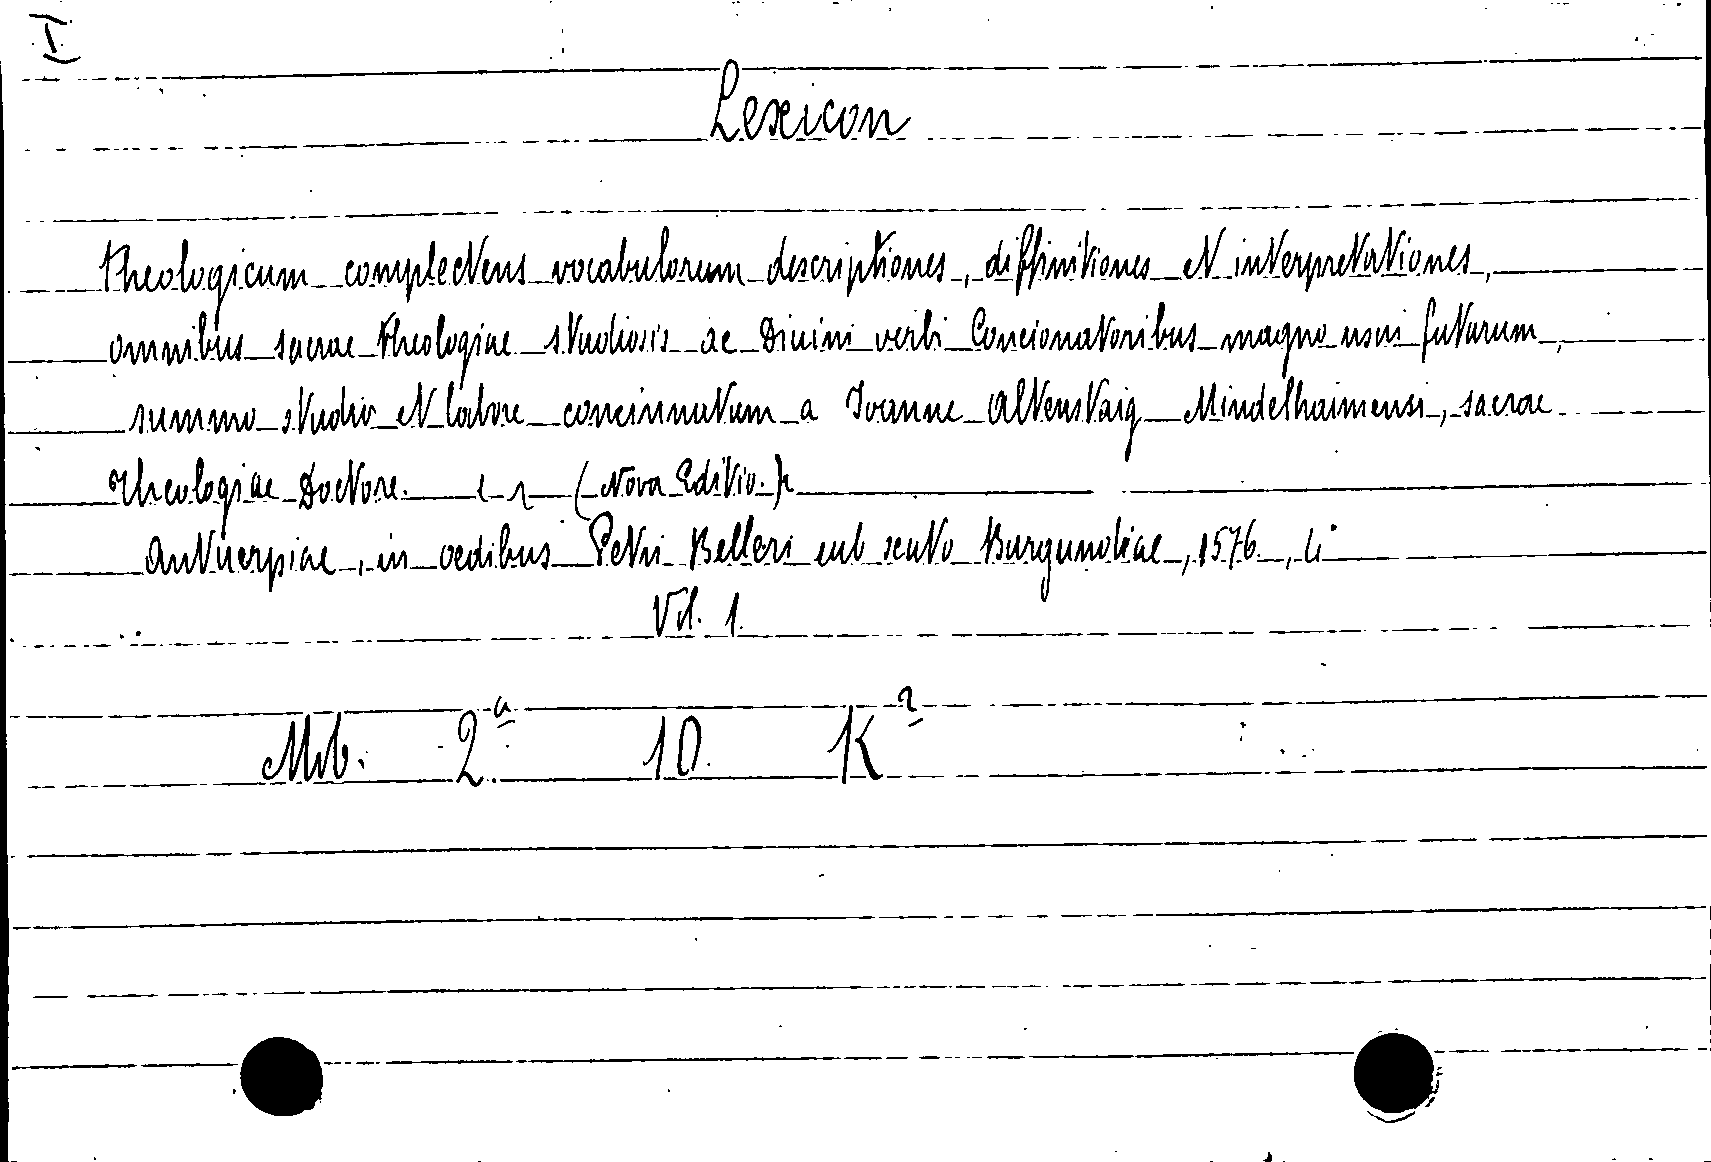 I
Lexicon
theologicum complectens vocabulorum descriptiones, diffinitiones et interpretationes,
omnibus sacrae theologiae studiosis ac Divini verbi Concionatoribus magno usui futurum,
summo studio et labore concinnatum a Joanne Altenstaig Mindelhaimensi, sacrae
Theologiae Doctore. (Nova Editio.)
Antuerpiae, in aedibus Petri Belleri sub scuto Burgundiae, 1576,
Vol. 1.
2a 10. K